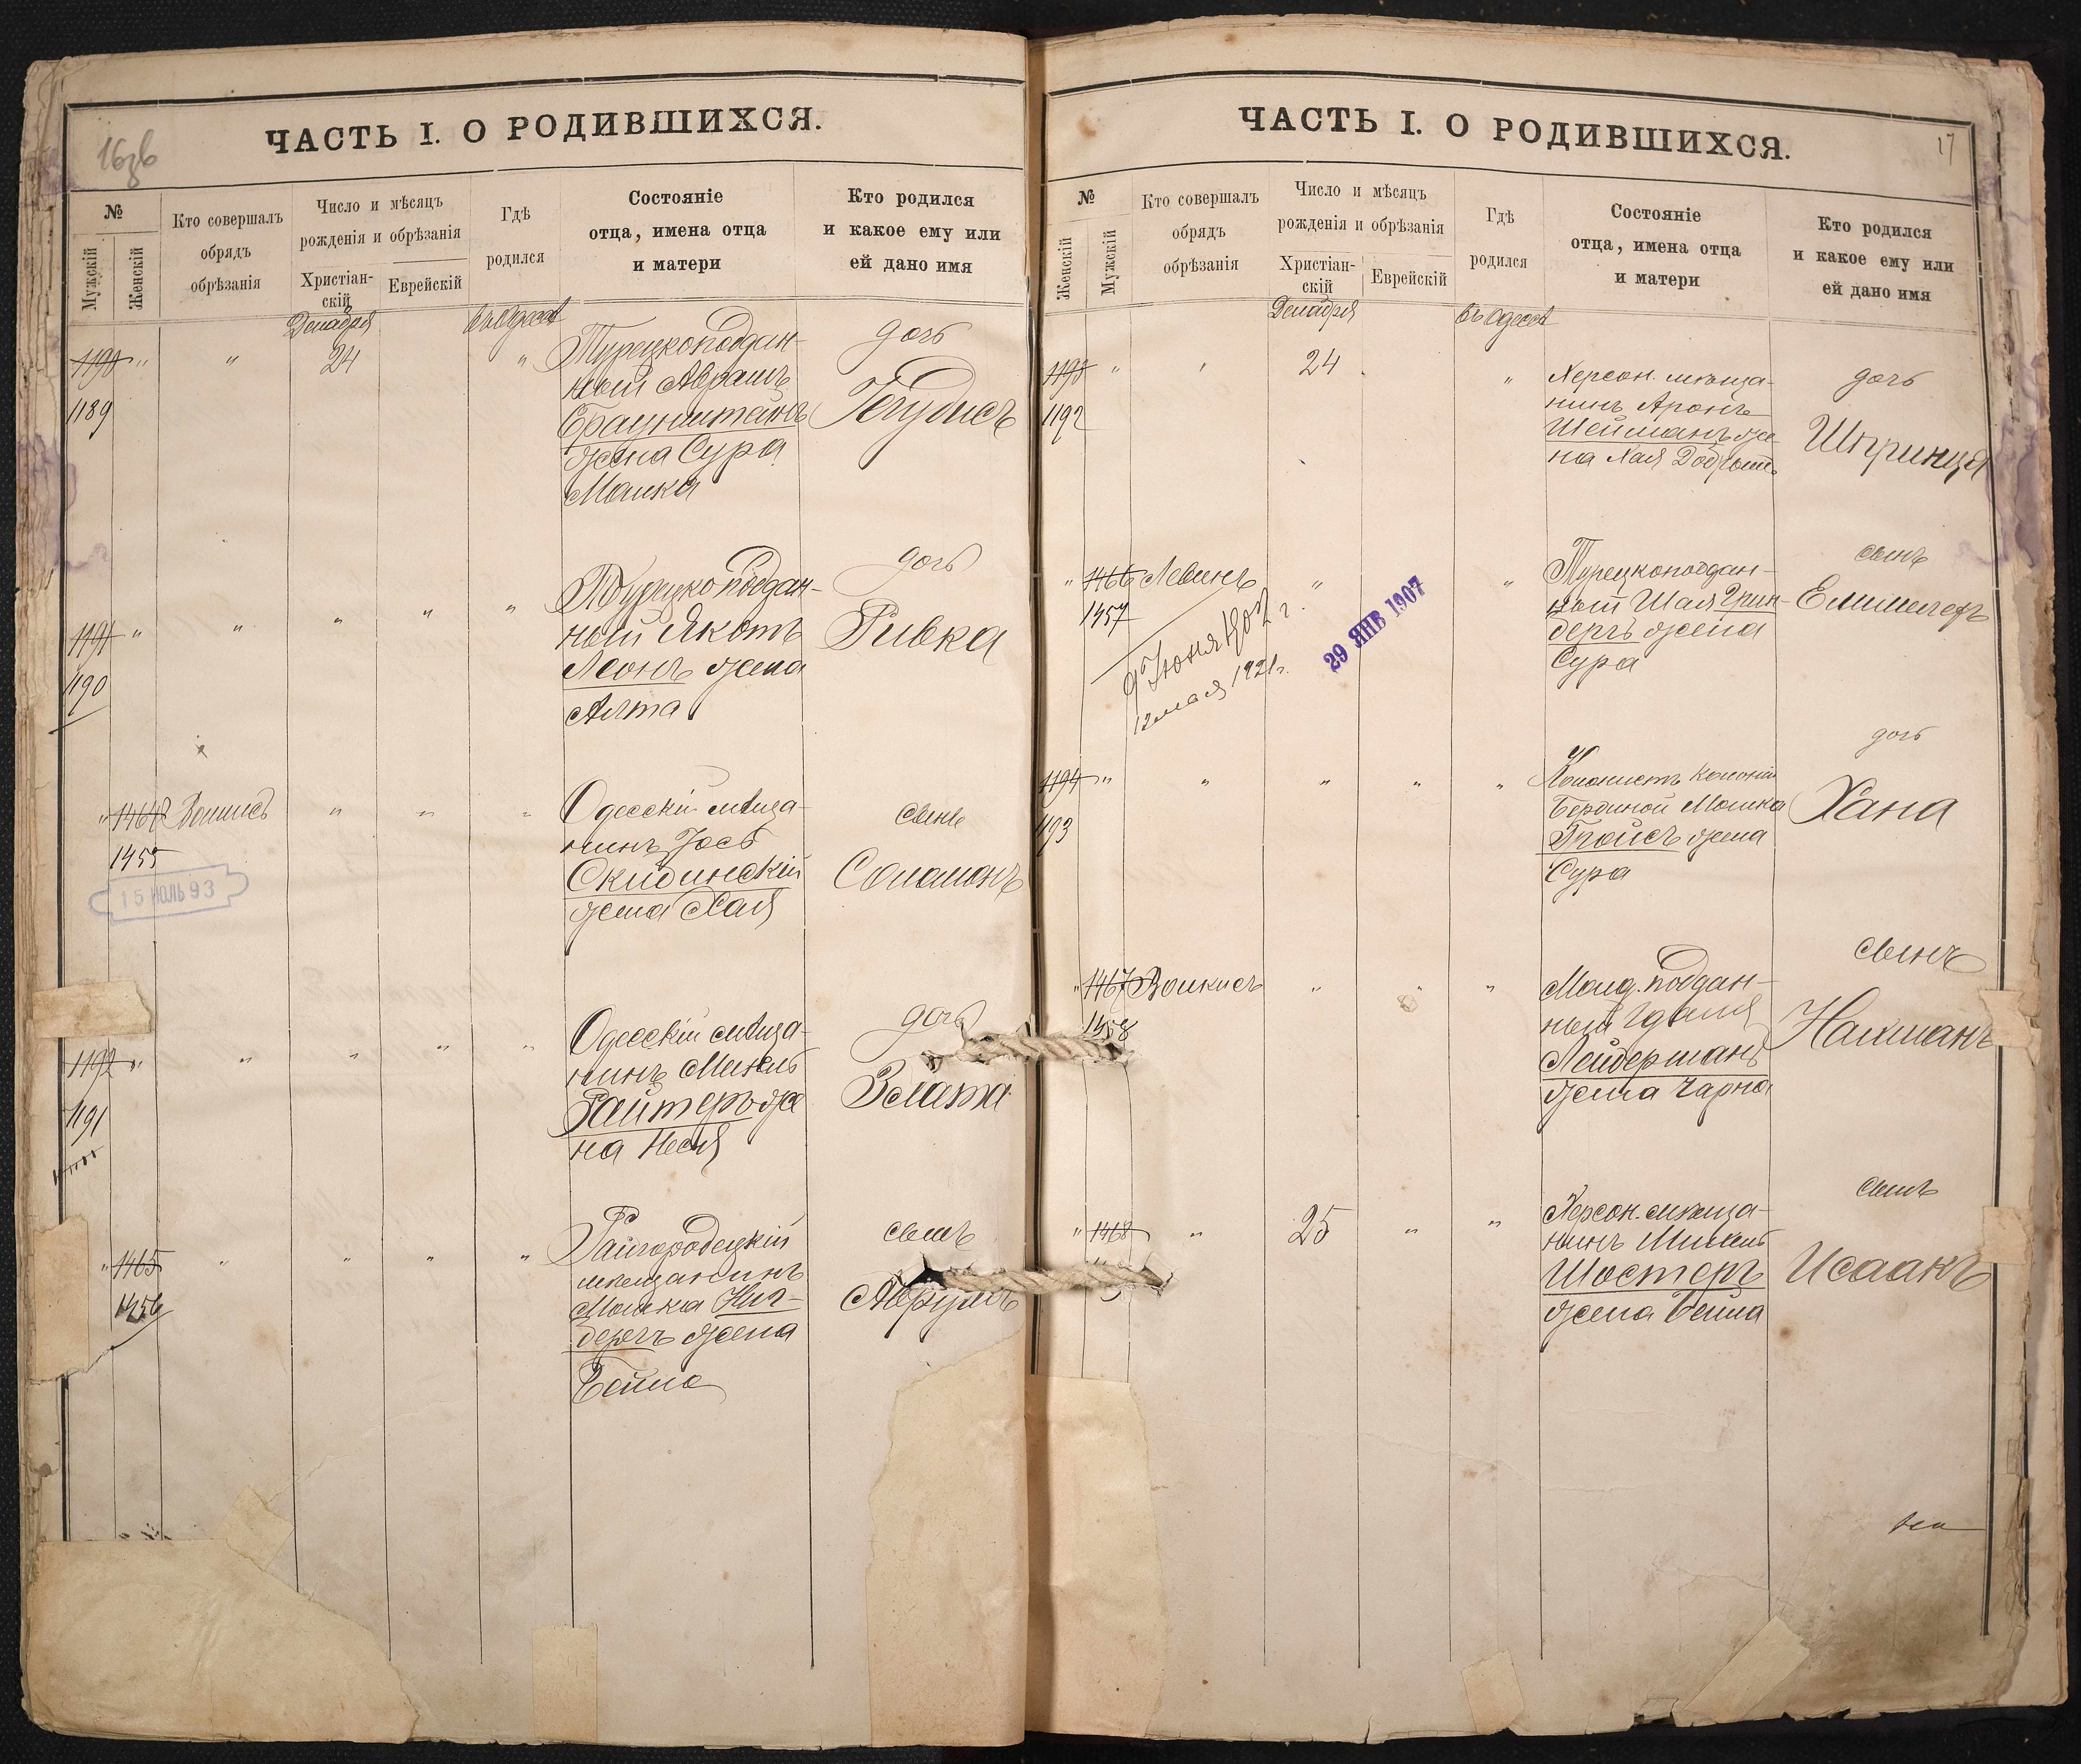 16зв
ЧАСТЬ I. О РОДИВШИХСЯ.
№
Мужскій
Женскій
Кто совершалъ
обрядъ
обрѣзанія
Число и мѣсяцъ
рожденія и обрѣзанія
Христіан-
скій
Еврейскій
Гдѣ
родился
Состояніе
отца, имена отца
и матери
Кто родился
и какое ему или
ей дано имя
Декабря
въ Одессѣ
1190 " " 24 "
1189
Турецкоподдан-
ный Аврамъ
Браунштейнъ
жена Сура
Малка
дочь
Іегудисъ
1191 " " " " "
1190
Турецко поддан-
ный Якотъ
Леонъ жена
Алта
дочь
Ривка
" 1464 " " "
1455
15 ИЮЛЬ 93
Одесскій мѣща-
нинъ Іосъ
Скидинскій
жена Хая
сынъ
Соломонъ
1192 " " " " "
1191
Одесскій мѣща-
нинъ Михель
Райтеръ же
на Неся
дочь
Злата
" 1465 " " " "
1456
Райгородецкій
мѣщанинъ
Мошка
бергъ жена
Бейла
сынъ
Аврумъ
ЧАСТЬ I. О РОДИВШИХСЯ.
17
№
Женскій
Мужскій
Кто совершалъ
обрядъ
обрѣзанія
Число и мѣсяцъ
рожденія и обрѣзанія
Христіан-
скій
Еврейскій
Гдѣ
родился
Состояніе
отца, имена отца
и матери
Кто родился
и какое ему или
ей дано имя
Декабря
въ Одессѣ
1193 " " 24 "
1192
Херсон. мѣща-
нинъ Аронъ
Шейманъ же-
на Хая
дочь
Шпринця
" 1466 Левинъ " "
1457
9 Іюня 1907 г.
12 мая 1921 г.
29 ЯНВ 1907
Турецкоподдан-
ный Шая Грин-
бергъ жена
Сура
сынъ
Елимелехъ
1194 " " " " "
1193
Колонистъ колоніи
Мошка
Гройсъ жена
Сура
дочь
Хана
" 1467 " " "
1458
Молд. поддан-
ный Гдаля
Лейдерманъ
жена Чарна
сынъ
Нахманъ
" 1468 " 25 " "
Херсон. мѣща-
нинъ Михель
Шостеръ
жена Бейла
сынъ
Исаакъ